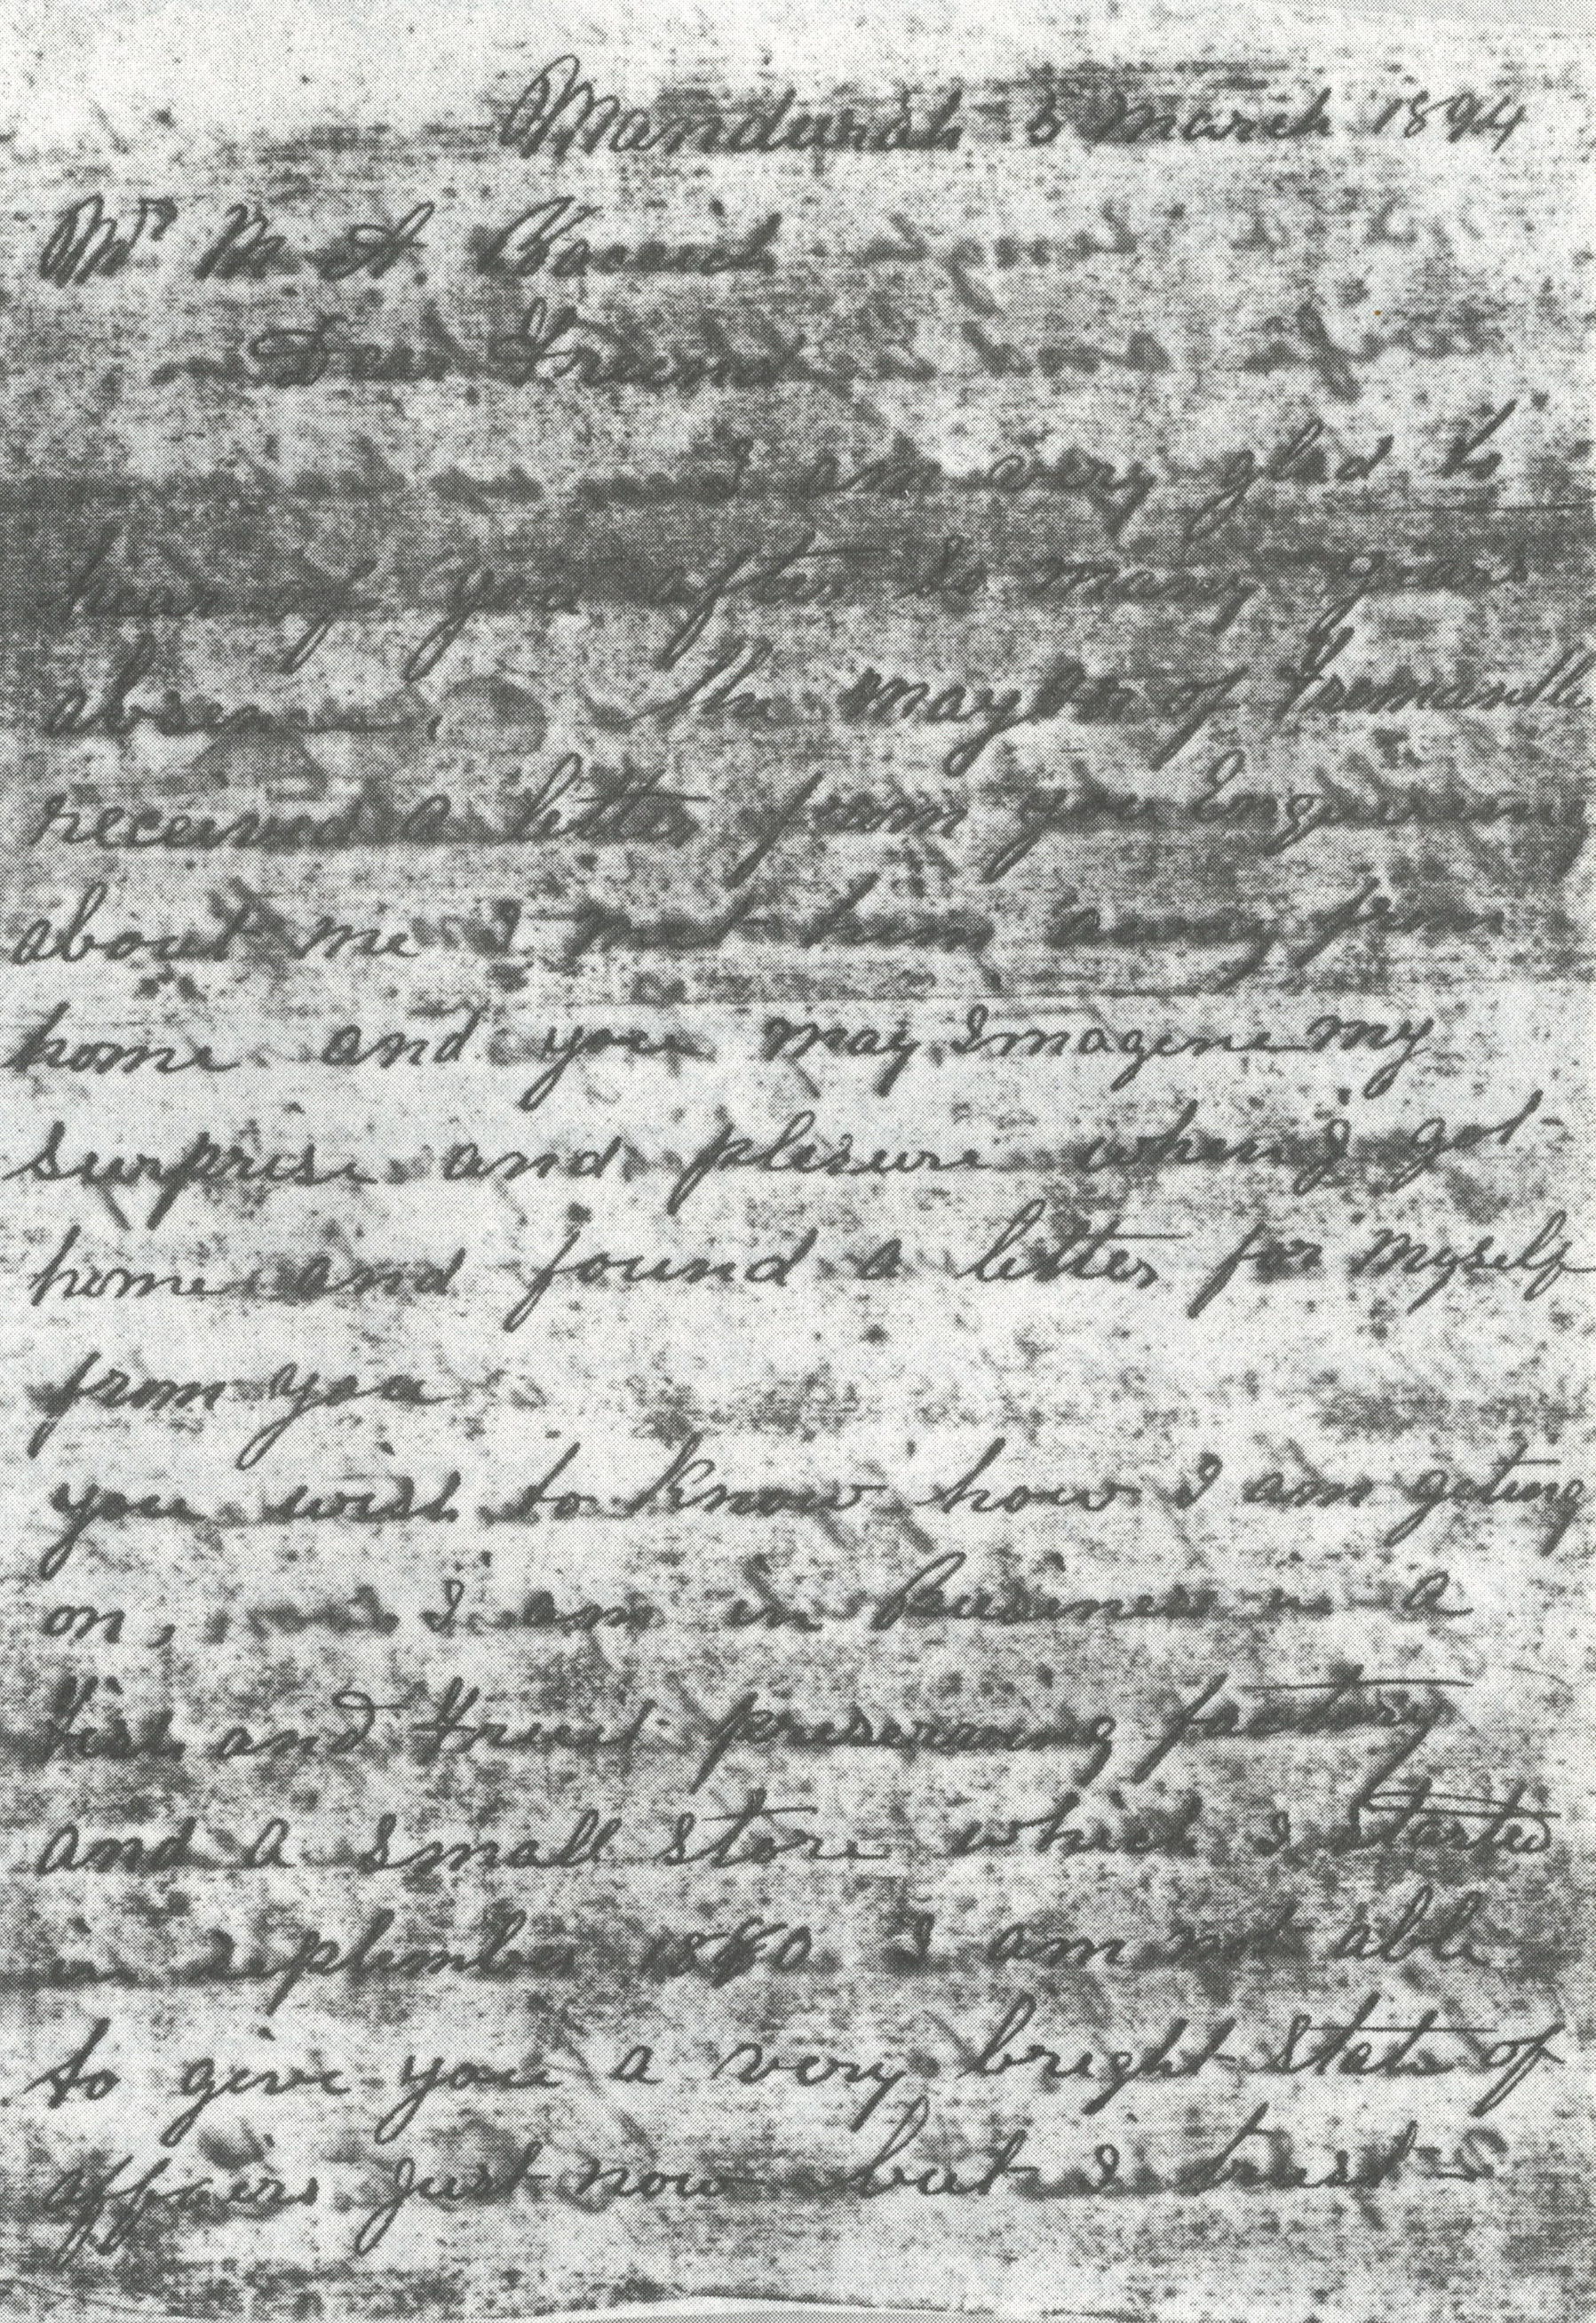 Mandurah 5 March 1894
Mr
Dear Friend
I am very glad to
hear of you after so many years
absence, the mayor of Fremantle
received a letter from you Enquiring
about me I met him away from
home and you may Imagine my
surprise and plesure when I got
home and found a letter for myself
from you
you wish to know how I am geting
on, I am in Business in a
Fish and Fruit preserving factory
and a small store which I started
in September 1880 I am not able
to give you a very bright state of
affairs just now but I trust